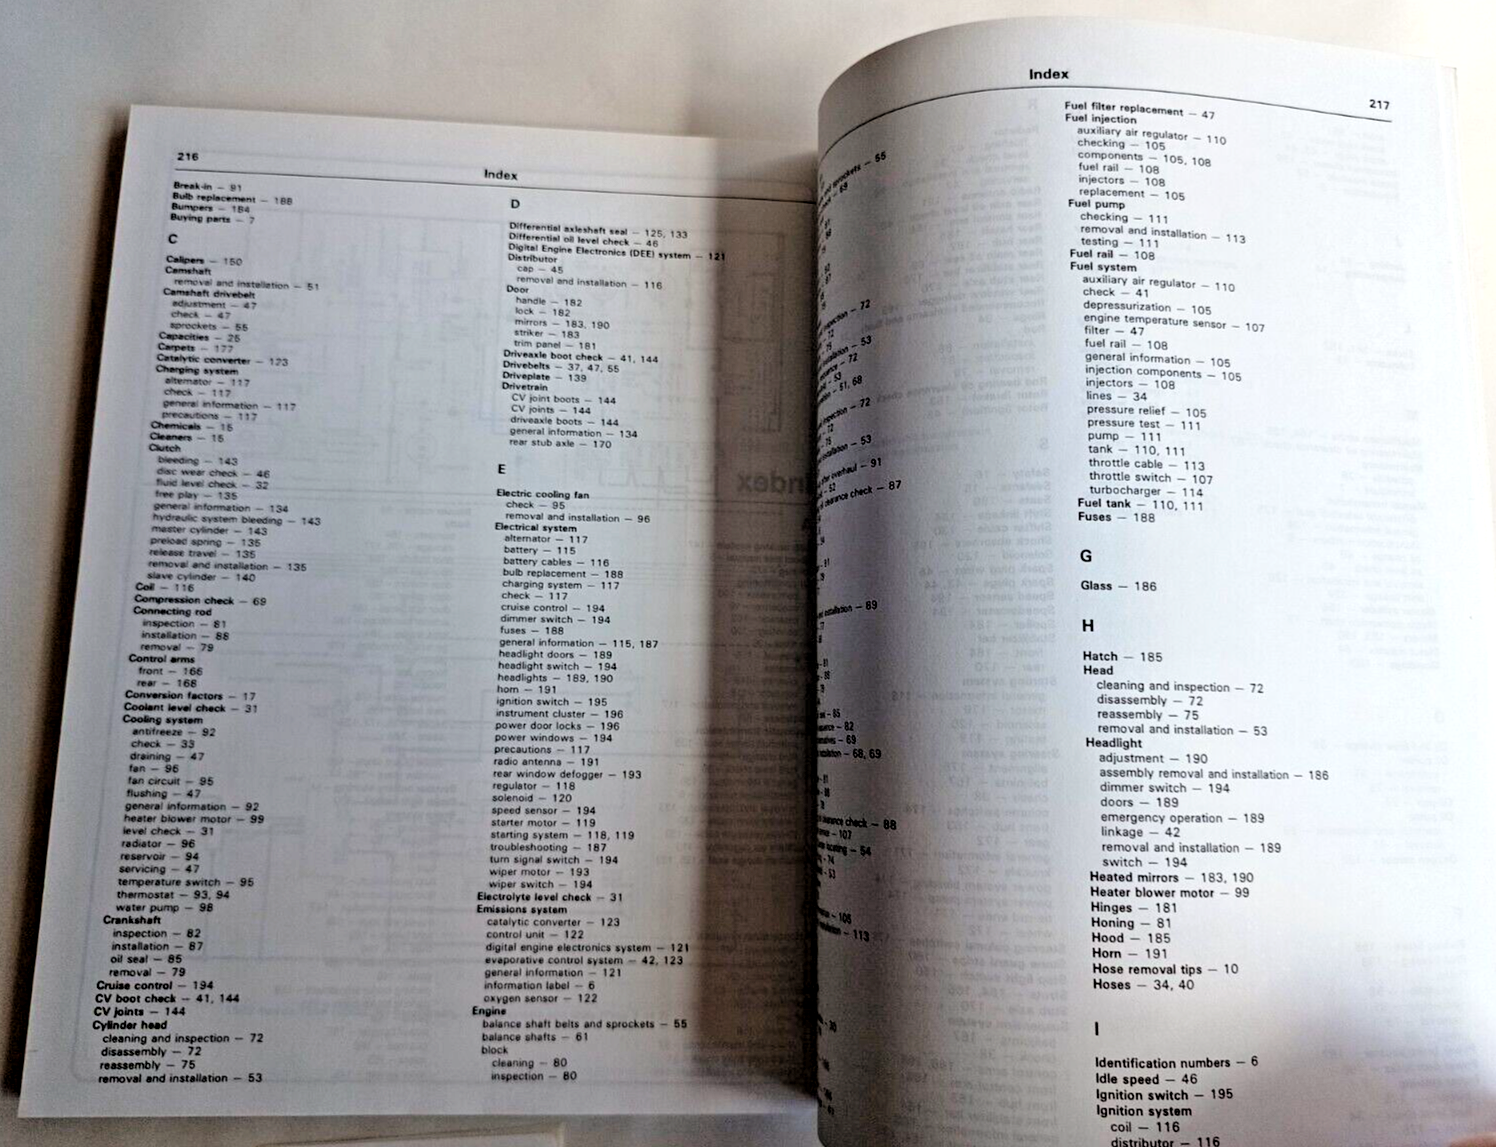 216
Index
Break-in — 91
Bulb replacement — 188
Bumpers — 184
Buying parts — 7
C
Calipers — 150
Camshaft
removal and installation — 51
Camshaft drivebelt
adjustment — 47
check — 47
sprockets — 55
Capacities — 25
Carpets — 177
Catalytic converter — 123
Charging system
alternator — 117
check — 117
general information — 117
precautions — 117
Chemicals — 15
Cleaners — 15
Clutch
bleeding — 143
disc wear check — 46
fluid level check — 32
free play — 135
general information — 134
hydraulic system bleeding — 143
master cylinder — 143
preload spring — 135
release travel — 135
removal and installation — 135
slave cylinder — 140
Coil — 116
Compression check — 69
Connecting rod
inspection — 81
installation — 88
removal — 79
Control arms
front — 166
rear — 168
Conversion factors — 17
Coolant level check — 31
Cooling system
antifreeze — 92
check — 33
draining — 47
fan — 96
fan circuit — 95
flushing — 47
general information — 92
heater blower motor — 99
level check — 31
radiator — 96
reservoir — 94
servicing — 47
temperature switch — 95
thermostat — 93, 94
water pump — 98
Crankshaft
inspection — 82
installation — 87
oil seal — 85
removal — 79
Cruise control — 194
CV boot check — 41, 144
CV joints — 144
Cylinder head
cleaning and inspection — 72
disassembly — 72
reassembly — 75
removal and installation — 53
D
Differential axleshaft seal — 125, 133
Differential oil level check — 46
Digital Engine Electronics (DEE) system — 121
Distributor
cap — 45
removal and installation — 116
Door
handle — 182
lock — 182
mirrors — 183, 190
striker — 183
trim panel — 181
Driveaxle boot check — 41, 144
Drivebelts — 37, 47, 55
Driveplate — 139
Drivetrain
CV joint boots — 144
CV joints — 144
driveaxle boots — 144
general information — 134
rear stub axle — 170
E
Electric cooling fan
check — 95
removal and installation — 96
Electrical system
alternator — 117
battery — 115
battery cables — 116
bulb replacement — 188
charging system — 117
check — 117
cruise control — 194
dimmer switch — 194
fuses — 188
general information — 115, 187
headlight doors — 189
headlight switch — 194
headlights — 189, 190
horn — 191
ignition switch — 195
instrument cluster — 196
power door locks — 196
power windows — 194
precautions — 117
radio antenna — 191
rear window defogger — 193
regulator — 118
solenoid — 120
speed sensor — 194
starter motor — 119
starting system — 118, 119
troubleshooting — 187
turn signal switch — 194
wiper motor — 193
wiper switch — 194
Electrolyte level check — 31
Emissions system
catalytic converter — 123
control unit — 122
digital engine electronics system — 121
evaporative control system — 42, 123
general information — 121
information label — 6
oxygen sensor — 122
Engine
balance shaft belts and sprockets — 55
balance shafts — 61
block
cleaning — 80
inspection — 80
Index
217
sprockets — 55
inspection — 72
installation — 53
— 51, 68
inspection — 72
installation — 53
after overhaul — 91
clearance check — 87
installation — 89
— 85
— 82
— 69
— 68, 69
clearance check — 88
— 107
— 54
Fuel filter replacement — 47
Fuel injection
auxiliary air regulator — 110
checking — 105
components — 105, 108
fuel rail — 108
injectors — 108
replacement — 105
Fuel pump
checking — 111
removal and installation — 113
testing — 111
Fuel rail — 108
Fuel system
auxiliary air regulator — 110
check — 41
depressurization — 105
engine temperature sensor — 107
filter — 47
fuel rail — 108
general information — 105
injection components — 105
injectors — 108
lines — 34
pressure relief — 105
pressure test — 111
pump — 111
tank — 110, 111
throttle cable — 113
throttle switch — 107
turbocharger — 114
Fuel tank — 110, 111
Fuses — 188
G
Glass — 186
H
Hatch — 185
Head
cleaning and inspection — 72
disassembly — 72
reassembly — 75
removal and installation — 53
Headlight
adjustment — 190
assembly removal and installation — 186
dimmer switch — 194
doors — 189
emergency operation — 189
linkage — 42
removal and installation — 189
switch — 194
Heated mirrors — 183, 190
Heater blower motor — 99
Hinges — 181
Honing — 81
Hood — 185
Horn — 191
Hose removal tips — 10
Hoses — 34, 40
I
Identification numbers — 6
Idle speed — 46
Ignition switch — 195
Ignition system
coil — 116
distributor — 116